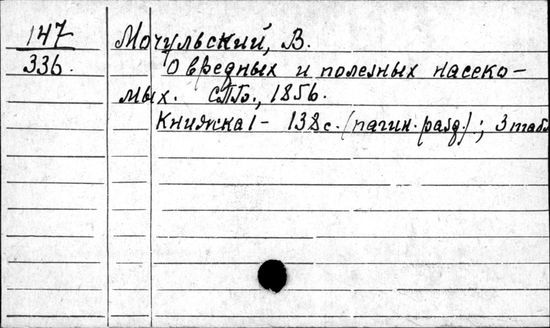 147
336.
Мочульский, В.
О вредных и полезных насеко-
мых. СПБ., 1856.
Книжка 1 - 138 с. (пагин. разд.); 3 табл